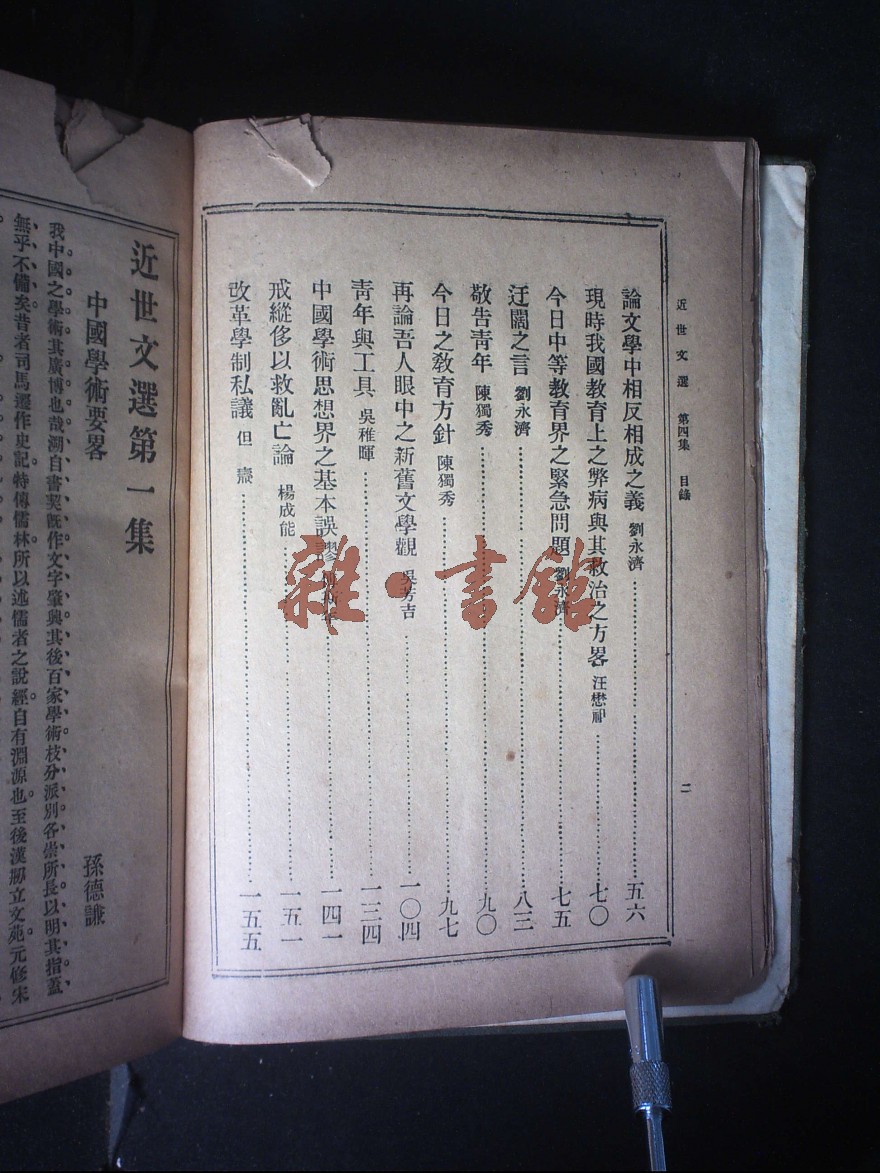 近世文選 第四集 目錄
論文學中相反相成之義 劉永濟……五六
現時我國教育上之弊病與其救治之方畧 汪懋祖……七〇
今日中等教育界之緊急問題 劉永濟……七五
迂闊之言 劉永濟……八三
敬告靑年 陳獨秀……九〇
今日之教育方針 陳獨秀……九七
再論吾人眼中之新舊文學觀 吳芳吉……一〇四
靑年與工具 吳稚暉……一三四
中國學術思想界之基本誤謬……一四一
戒縱侈以救亂亡論 楊成能……一五一
改革學制私議 但燾……一五五
二
近世文選第一集
中國學術要畧
孫德謙
我中國之學術其廣博也哉溯自書契旣作文字肇興其後百家學術枝分派別各崇所長以明其指蓋
無乎不備矣昔者司馬遷作史記特傳儒林所以述儒者之說經自有淵源也至後漢剏立文苑元修宋
雜·書館